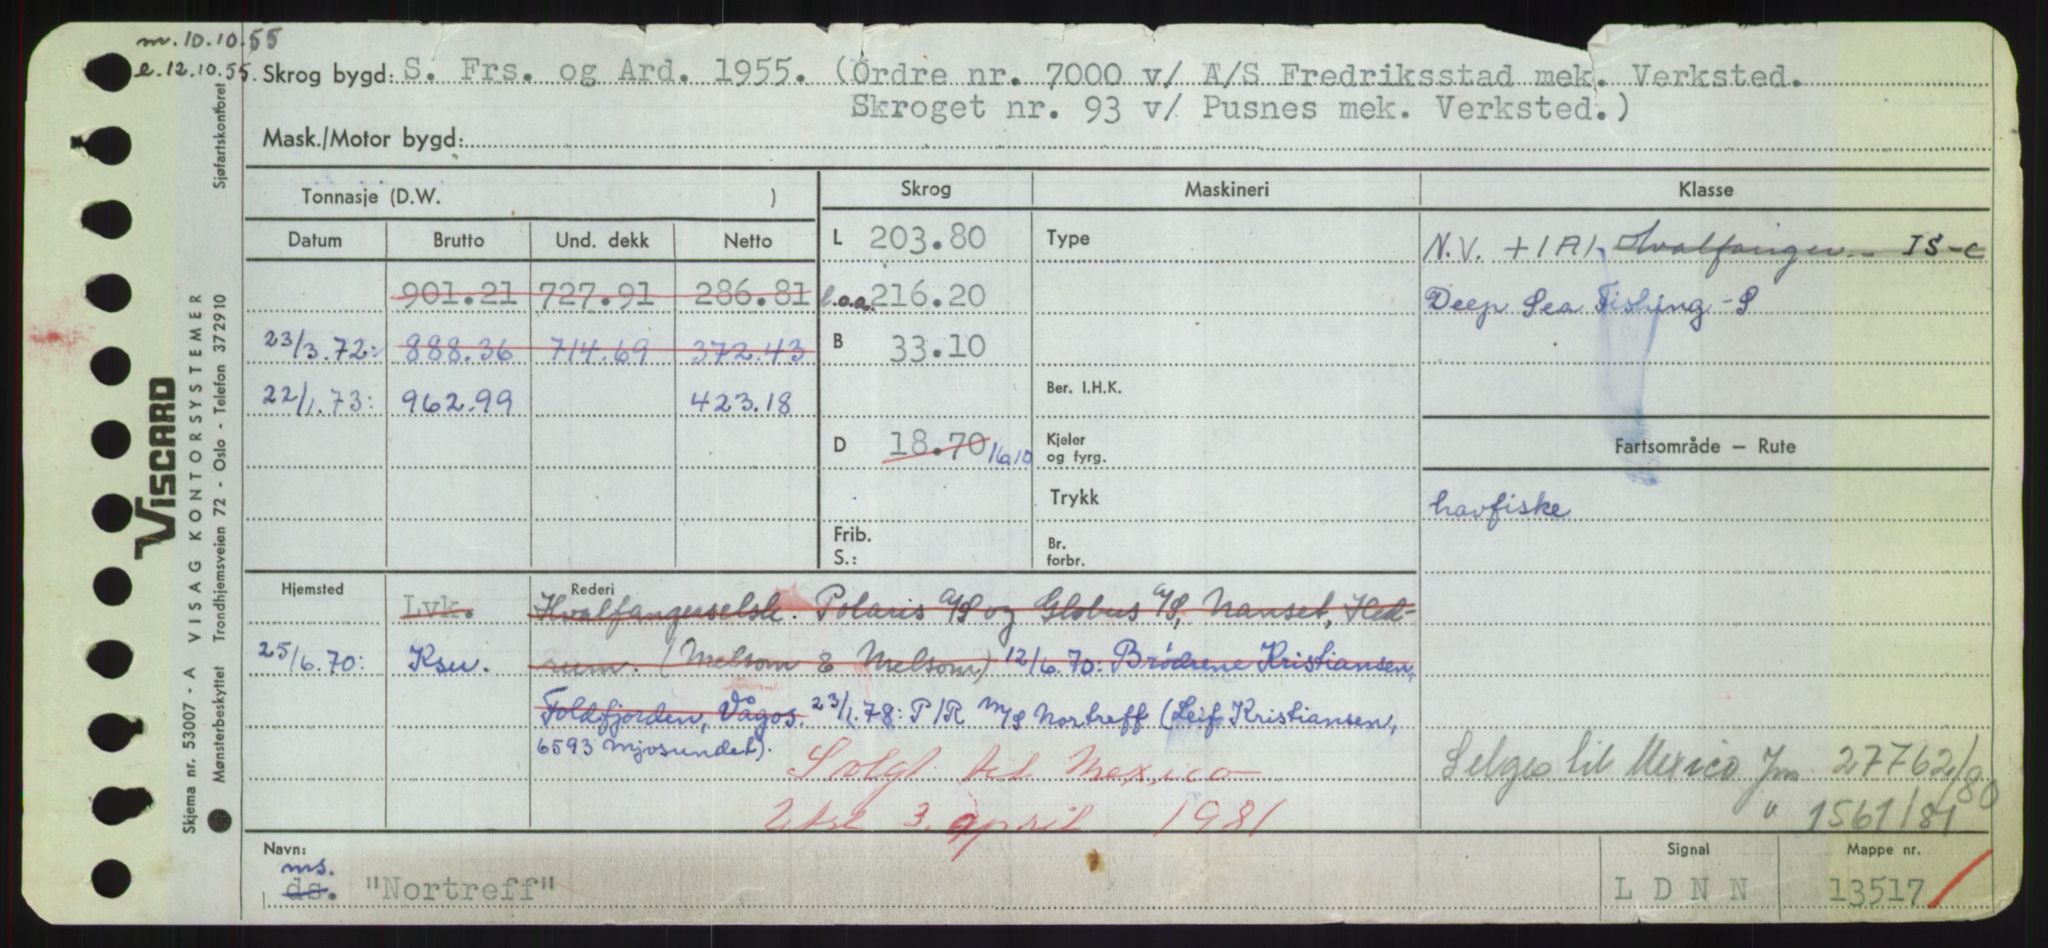 m. 10.10.55
e. 12.10.55. Skrog bygd: S. Frs. og Ard. 1955. (Ordre nr. 7000 v/ A/S Fredriksstad mek. Verksted.
Skroget nr. 93 v/ Pusnes mek. Verksted.)
Mask./Motor bygd:
Tonnasje (D.W. )
Skrog
Maskineri
Klasse
Datum Brutto Und. dekk Netto
901.21 727.91 286.81
23/3.72: 888.36 714.69 372.43
22/1.73: 962.99 423.18
L 203.80
l.o.a. 216.20
B 33.10
D 18.70 16.10
Frib.
S.:
Type
Ber. I.H.K.
Kjeler
og fyrg.
Trykk
Br.
forbr.
N.V. +1A1. Hvalfanger.. IS-C
Deep Sea Fishing -S
Fartsområde – Rute
havfiske
Hjemsted Lvk.
25/6.70: Ksu.
Rederi
Hvalfangerselsk. Polaris A/S og Globus A/S, Nanset, Hed-
rum. (Melsom & Melsom) 12/6.70: Brödrene Kristiansen,
Foldfjorden, Vågos. 23/1.78: P/R M/S Nortreff (Leif Kristiansen,
6593 Mjosundet).
Solgt til Mexico
3. april 1981
Selges til Mexico Jnr. 27762/80
" 1561/81
Navn:
ms.
ds. "Nortreff"
Signal
L D N N
Mappe nr.
13517
Viscard
VISAG KONTORSYSTEMER
Skjema nr. 53007 - A
Mønsterbeskyttet Trondhjemsveien 72 - Oslo - Telefon 372910
Sjøfartskontoret